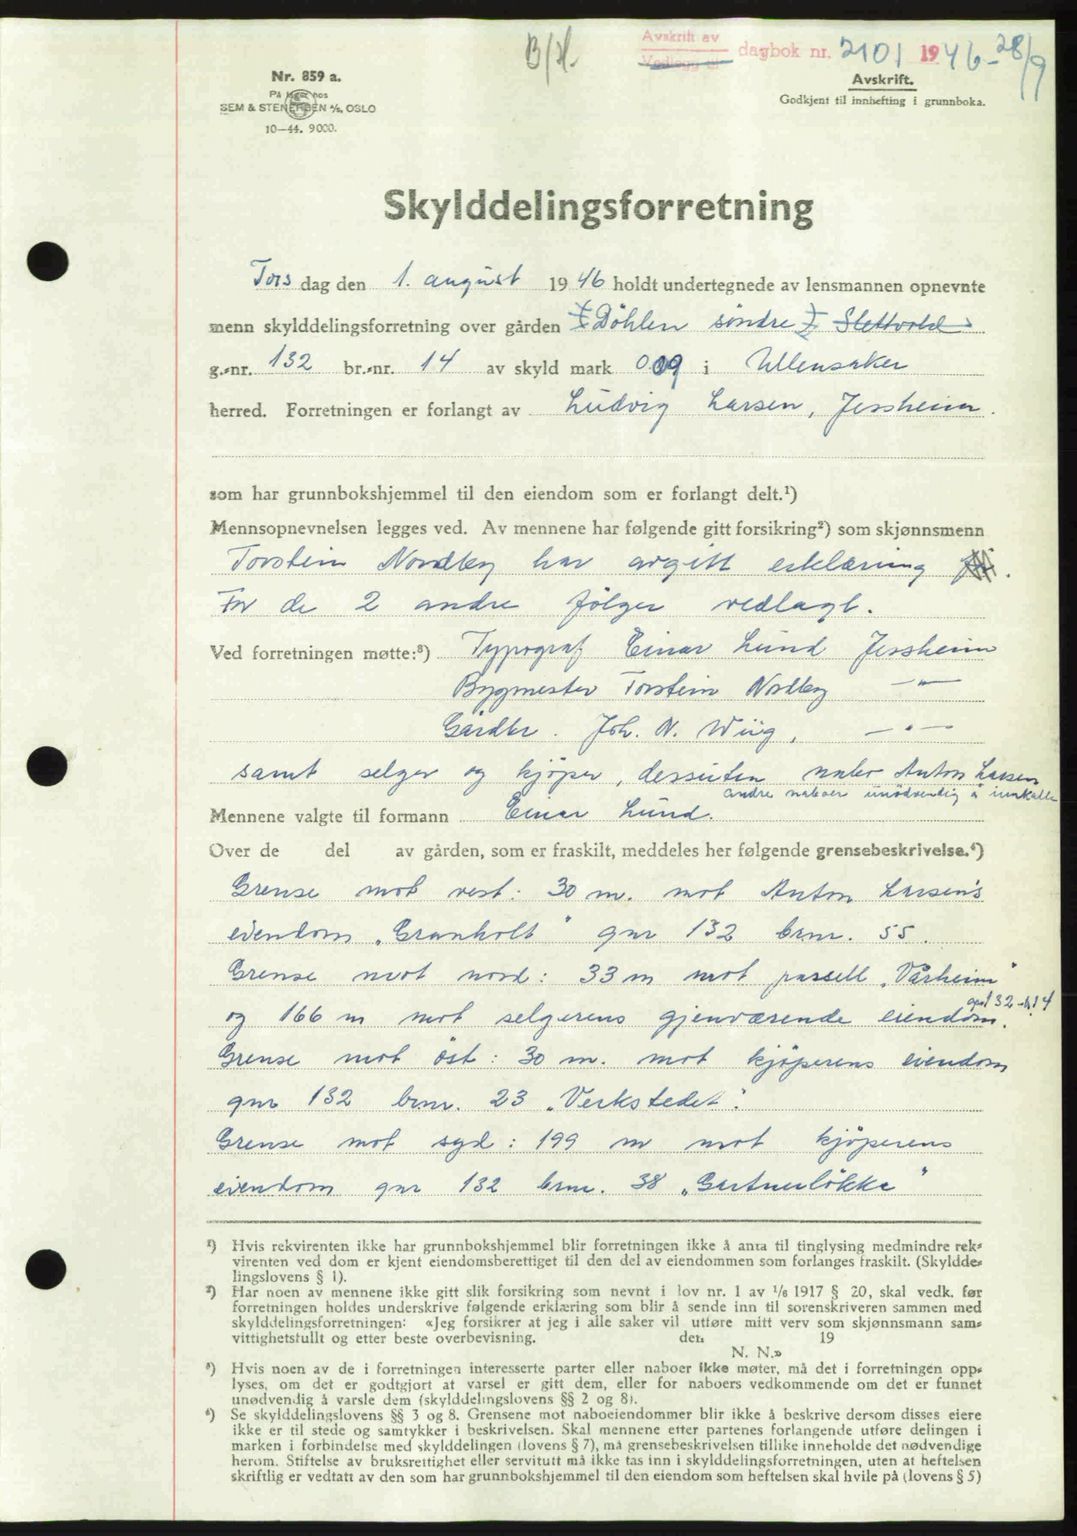 B/H.
Avskrift av
Vedlegg til
dagbok nr. 2101 1946 - 28/9
Nr. 859 a.
På lager hos
SEM & STENERSEN A/S, OSLO
10—44. 9000.
Avskrift.
Godkjent til innhefting i grunnboka.
Skylddelingsforretning
Tors dag den 1. august 1946 holdt undertegnede av lensmannen opnevnte
menn skylddelingsforretning over gården Döhlen söndre Slettvold
g.-nr. 132 br.-nr. 14 av skyld mark 009 i Ullensaker
herred. Forretningen er forlangt av Ludvig Larsen, Jessheim.
som har grunnbokshjemmel til den eiendom som er forlangt delt.¹)
Mennsopnevnelsen legges ved. Av mennene har følgende gitt forsikring²) som skjønnsmenn
Torstein Nordby har avgitt erklæring.
For de 2 andre fölger vedlagt.
Ved forretningen møtte:³) Typograf Einar Lund Jessheim
Bygmester Torstein Nordby —"—
Gårdbr. Joh. N. Wiig, —"—
samt selger og kjöper, dessuten nabo Anton Larsen
andre naboer unödvendig å innkalle
Mennene valgte til formann Einar Lund.
Over de del av gården, som er fraskilt, meddeles her følgende grensebeskrivelse.⁴)
Grense mot vest: 30 m. mot Anton Larsen's
eiendom „Granholt" gnr 132 brnr. 55.
Grense mot nord: 33 m mot parsell „Vårheim"
gnr 132 - b. 14
og 166 m mot selgerens gjenværende eiendom.
Grense mot öst: 30 m. mot kjöperens eiendom
gnr 132 brnr. 23 „Verkstedet".
Grense mot syd: 199 m mot kjöperens
eiendom gnr 132 brnr. 38 „Gartnerlökka"
¹) Hvis rekvirenten ikke har grunnbokshjemmel blir forretningen ikke å anta til tinglysing medmindre rek-
virenten ved dom er kjent eiendomsberettiget til den del av eiendommen som forlanges fraskilt. (Skyldde-
lingslovens § 1).
²) Har noen av mennene ikke gitt slik forsikring som nevnt i lov nr. 1 av 1/6 1917 § 20, skal vedk. før
forretningen holdes underskrive følgende erklæring som blir å sende inn til sorenskriveren sammen med
skylddelingsforretningen: «Jeg forsikrer at jeg i alle saker vil utføre mitt verv som skjønnsmann sam-
vittighetsfullt og etter beste overbevisning. den 19
N. N.»
³) Hvis noen av de i forretningen interesserte parter eller naboer ikke møter, må det i forretningen opp-
lyses, om det er godtgjort at varsel er gitt dem, eller for naboers vedkommende om det er funnet
unødvendig å varsle dem (skylddelingslovens §§ 2 og 8).
⁴) Se skylddelingslovens §§ 3 og 8. Grensene mot naboeiendommer blir ikke å beskrive dersom disses eiere
ikke er til stede og samtykker i beskrivelsen. Skal mennene etter partenes forlangende utføre delingen i
marken i forbindelse med skylddelingen (lovens § 7), må grensebeskrivelsen tillike inneholde det nødvendige
herom. Stiftelse av bruksrettighet eller servitutt må ikke tas inn i skylddelingsforretningen, uten at heftelsen
skriftlig er vedtatt av den som har grunnbokshjemmel til den eiendom som heftelsen skal hvile på (lovens § 5)